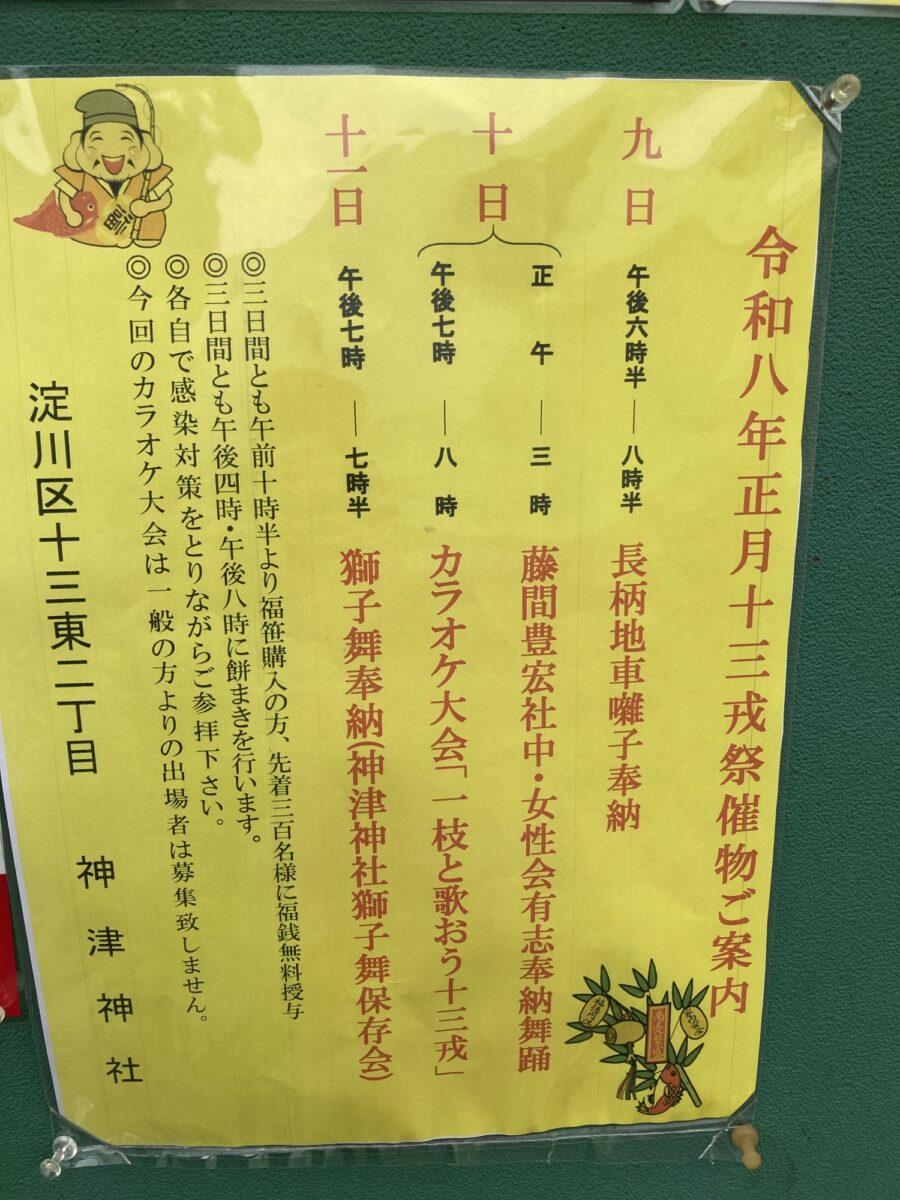 令和八年正月十三戎祭催物ご案内
九日 午後六時半―八時半 長柄地車囃子奉納
十日 正午―三時 藤間豊宏社中・女性会有志奉納舞踊
午後七時―八時 カラオケ大会「一枝と歌おう十三戎」
十一日 午後七時―七時半 獅子舞奉納(神津神社獅子舞保存会)
◎三日間とも午前十時半より福笹購入の方、先着三百名様に福銭無料授与
◎三日間とも午後四時・午後八時に餅まきを行います。
◎各自で感染対策をとりながらご参拝下さい。
◎今回のカラオケ大会は一般の方よりの出場者は募集致しません。
淀川区十三東二丁目 神津神社